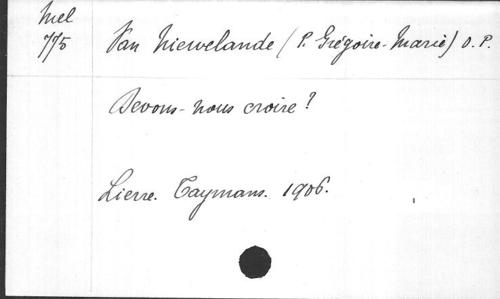 Mel
775
Van Niewelande (P. Grégoire-Marie) O. P.
Devons-nous croire?
Lierre. Taymans. 1906.